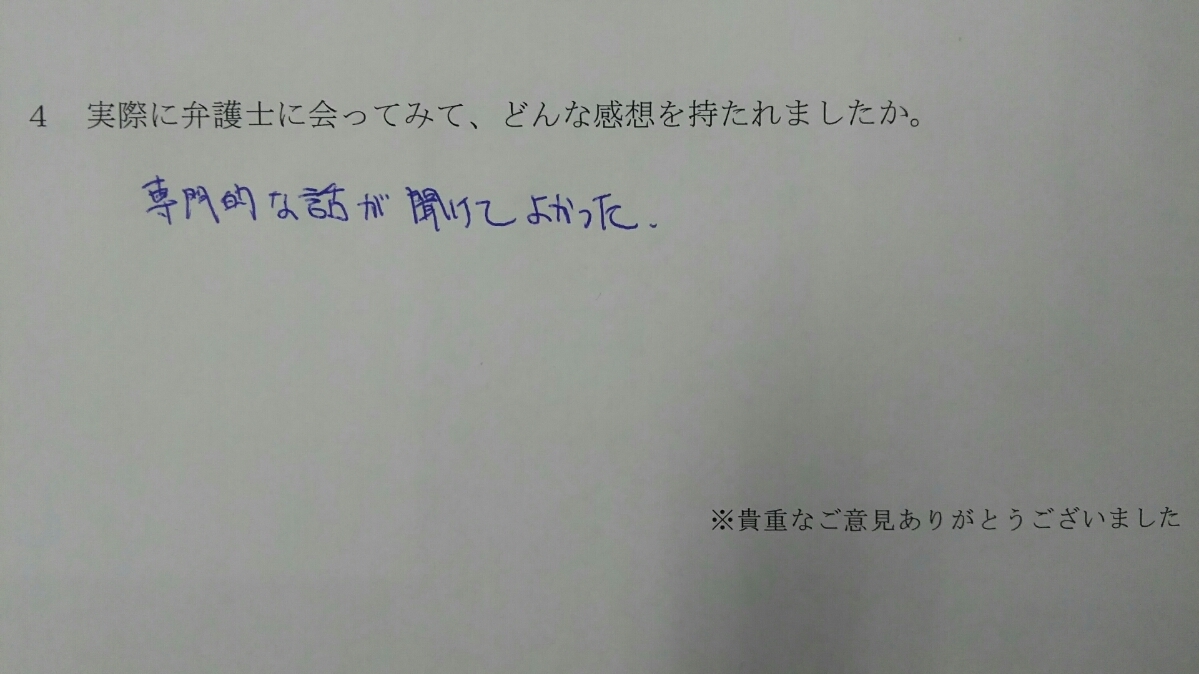 4　実際に弁護士に会ってみて、どんな感想を持たれましたか。
専門的な話が聞けてよかった.
※貴重なご意見ありがとうございました